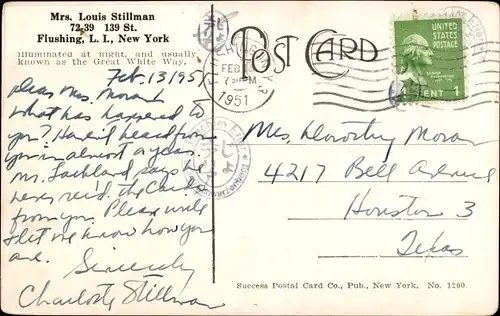 Mrs. Louis Stillman
72-39 139 St.
Flushing, L. I., New York
Illuminated at night, and usually
known as the Great White Way.
Feb 13 1951
Mrs. Moran
What has happened to
you? Haven't heard from
you in almost a year.
Mr. says he
never rec'd the Cards
from you. Please write
& let me know how you
are.
Sincerely
Charlotte Stillman
POST CARD
FLUSHING, N.Y.
FEB
PM
1951
UNITED STATES
POSTAGE
1 CENT 1
Mrs. Dorothy Moran
4217 Bell Avenue
Houston 3
Texas
Success Postal Card Co., Pub., New York. No. 1200.